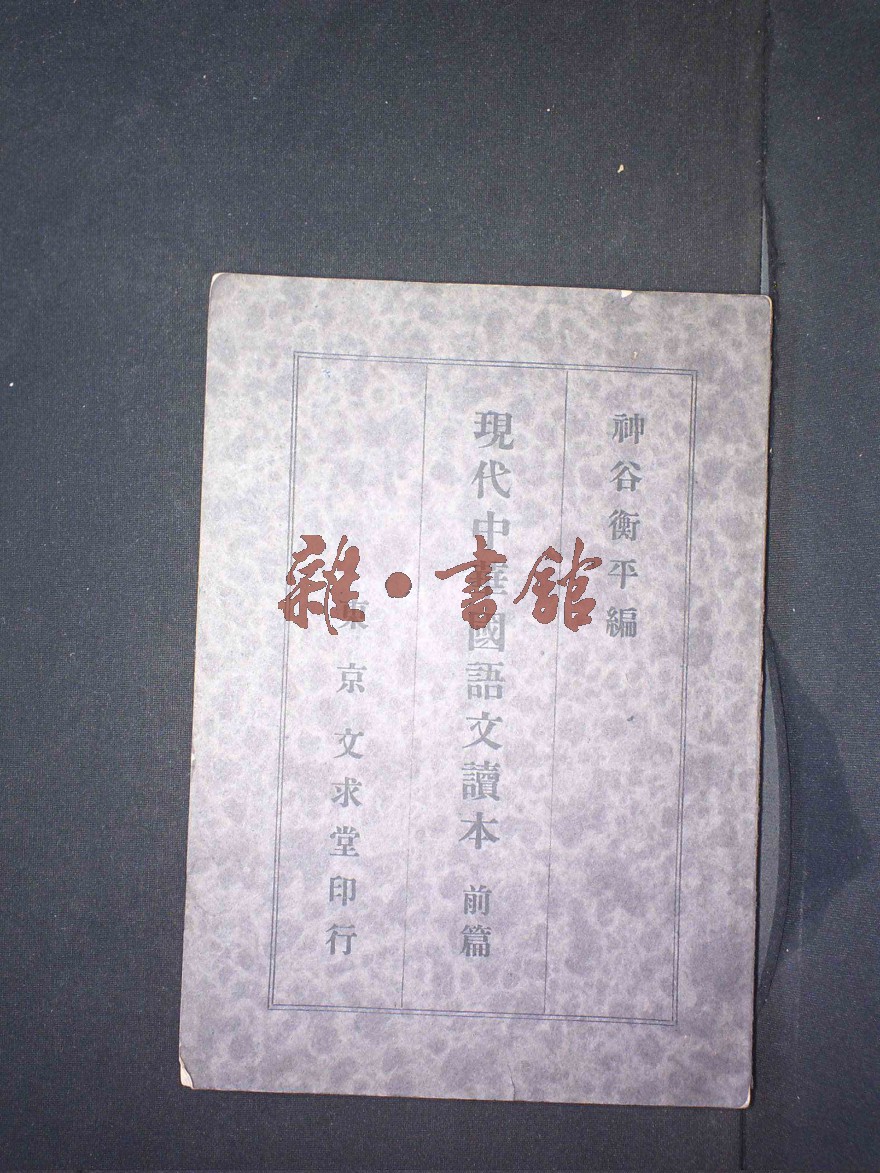 神谷衡平編
現代中華國語文讀本 前篇
東京 文求堂印行
雜·書館